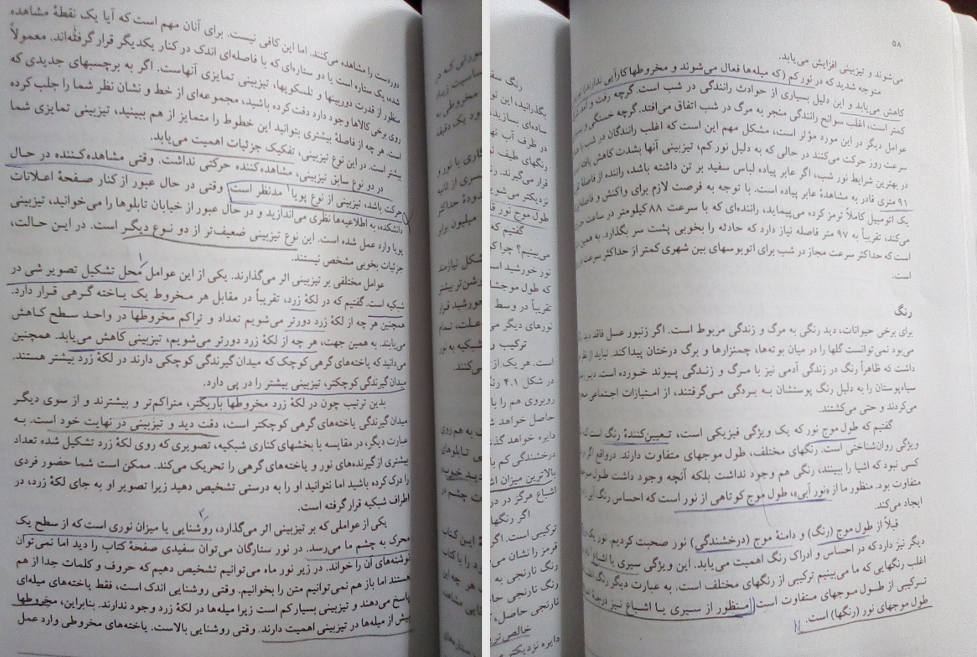 دوردست را مشاهده می‌کنند. اما این کافی نیست. برای آنان مهم است که آیا یک نقطهٔ مشاهده
شده، یک ستاره است یا دو ستاره‌ای که با فاصله‌ای اندک در کنار یکدیگر قرار گرفته‌اند. معمولاً
منظور از قدرت دوربینها و تلسکوپها، تیزبینی تمایزی آنهاست. اگر به برچسبهای جدیدی که
روی برخی کالاها وجود دارد دقت کرده باشید، مجموعه‌ای از خط و نشان نظر شما را جلب کرده
است. هر چه از فاصلهٔ بیشتری بتوانید این خطوط را متمایز از هم ببینید، تیزبینی تمایزی شما
بیشتر است. در این نوع تیزبینی، تفکیک جزئیات اهمیت می‌یابد.
در دو نوع سابق تیزبینی، مشاهده‌کننده حرکتی نداشت. وقتی مشاهده‌کننده در حال
حرکت باشد، تیزبینی از نوع پویا مدنظر است. وقتی در حال عبور از کنار صفحهٔ اعلانات
دانشکده، به اطلاعیه‌ها نظری می‌اندازید و در حال عبور از خیابان تابلوها را می‌خوانید، تیزبینی
پویا وارد عمل شده است. این نوع تیزبینی ضعیف‌تر از دو نوع دیگر است. در این حالت،
جزئیات بخوبی مشخص نیستند.
عوامل مختلفی بر تیزبینی اثر می‌گذارند. یکی از این عوامل محل تشکیل تصویر شی در
شبکیه است. گفتیم که در لکهٔ زرد، تقریباً در مقابل هر مخروط یک یاخته گرهی قرار دارد.
همچنین هر چه از لکهٔ زرد دورتر می‌شویم تعداد و تراکم مخروطها در واحد سطح کاهش
می‌یابند. به همین جهت، هر چه از لکهٔ زرد دورتر می‌شویم، تیزبینی کاهش می‌یابد. همچنین
می‌دانید که یاخته‌های گرهی کوچک که میدان گیرندگی کوچکی دارند در لکهٔ زرد بیشتر هستند.
میدان گیرندگی کوچکتر، تیزبینی بیشتر را در پی دارد.
بدین ترتیب چون در لکهٔ زرد مخروطها باریکتر، متراکم‌تر و بیشترند و از سوی دیگر
میدان گیرندگی یاخته‌های گرهی کوچکتر است، دقت دید و تیزبینی در نهایت خود است. به
عبارت دیگر، در مقایسه با بخشهای کناری شبکیه، تصویری که روی لکهٔ زرد تشکیل شده تعداد
بیشتری از گیرنده‌های نور و یاخته‌های گرهی را تحریک می‌کند. ممکن است شما حضور فردی
را درک کرده باشید اما نتوانید او را به درستی تشخیص دهید زیرا تصویر او به جای لکهٔ زرد، در
اطراف شبکیه قرار گرفته است.
یکی از عواملی که بر تیزبینی اثر می‌گذارد، روشنایی یا میزان نوری است که از سطح یک
محرک به چشم ما می‌رسد. در نور ستارگان می‌توان سفیدی صفحهٔ کتاب را دید اما نمی‌توان
نوشته‌های آن را خواند. در زیر نور ماه می‌توانیم تشخیص دهیم که حروف و کلمات جدا از هم
هستند اما باز هم نمی‌توانیم متن را بخوانیم. وقتی روشنایی اندک است، فقط یاخته‌های میله‌ای
پاسخ می‌دهند و تیزبینی بسیار کم است زیرا میله‌ها در لکهٔ زرد وجود ندارند. بنابراین، مخروطها
بیش از میله‌ها در تیزبینی اهمیت دارند. وقتی روشنایی بالاست، یاخته‌های مخروطی وارد عمل
۵۸
می‌شوند و تیزبینی افزایش می‌یابد.
متوجه شدید که در نور کم (که میله‌ها فعال می‌شوند و مخروطها کارآیی ندارند)
کاهش می‌یابد و این دلیل بسیاری از حوادث رانندگی در شب است. گرچه رفت و
کمتر است، اغلب سوانح رانندگی منجر به مرگ در شب اتفاق می‌افتد. گرچه خستگی و
عوامل دیگر در این مورد مؤثر است، مشکل مهم این است که اغلب رانندگان در شب
سرعت روز حرکت می‌کنند در حالی که به دلیل نور کم، تیزبینی آنها بشدت کاهش
در بهترین شرایط نور شب، اگر عابر پیاده لباس سفید بر تن داشته باشد، راننده از فاصلهٔ
۹۱ متری قادر به مشاهدهٔ عابر پیاده است. با توجه به فرصت لازم برای واکنش و
یک اتومبیل کاملاً ترمز کرده می‌پیماید، راننده‌ای که با سرعت ۸۸ کیلومتر در ساعت
می‌کند، تقریباً به ۹۷ متر فاصله نیاز دارد که حادثه را بخوبی پشت سر بگذارد. به همین
است که حداکثر سرعت مجاز در شب برای اتوبوسهای بین شهری کمتر از حداکثر سرعت
است.
رنگ
برای برخی حیوانات، دید رنگی به مرگ و زندگی مربوط است. اگر زنبور عسل فاقد دید
می‌بود نمی‌توانست گلها را در میان بوته‌ها، چمنزارها و برگ درختان پیدا کند. نباید از نظر
داشت که ظاهراً رنگ در زندگی آدمی نیز با مرگ و زندگی پیوند خورده است.
سیاه‌پوستان را به دلیل رنگ پوستشان به بردگی می‌گرفتند، از امتیازات اجتماعی
می‌کردند و حتی می‌کشتند.
گفتیم که طول موج نور که یک ویژگی فیزیکی است، تعیین‌کنندهٔ رنگ است
ویژگی روان‌شناختی است. رنگهای مختلف، طول موجهای متفاوت دارند. درواقع اگر
کسی نبود که اشیا را ببیند، رنگی هم وجود نداشت بلکه آنچه وجود داشت طول
متفاوت بود. منظور ما از «نور آبی»، طول موج کوتاهی از نور است که احساس رنگ آبی
ایجاد می‌کند.
قبلاً از طول موج (رنگ) و دامنهٔ موج (درخشندگی) نور صحبت کردیم. نور
دیگر نیز دارد که در احساس و ادراک رنگ اهمیت می‌یابد. این ویژگی سیری یا اشباع
اغلب رنگهایی که ما می‌بینیم ترکیبی از رنگهای مختلف است. به عبارت دیگر رنگ
ترکیبی از طول موجهای متفاوت است. منظور از سیری یا اشباع نیز درجهٔ
طول موجهای نور (رنگها) است.